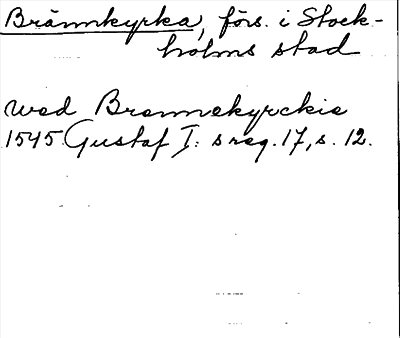 Brännkyrka, förs. i Stock-
holms stad
wed Brennekyrckie
1545 Gustaf I: s reg. 17, s. 12.